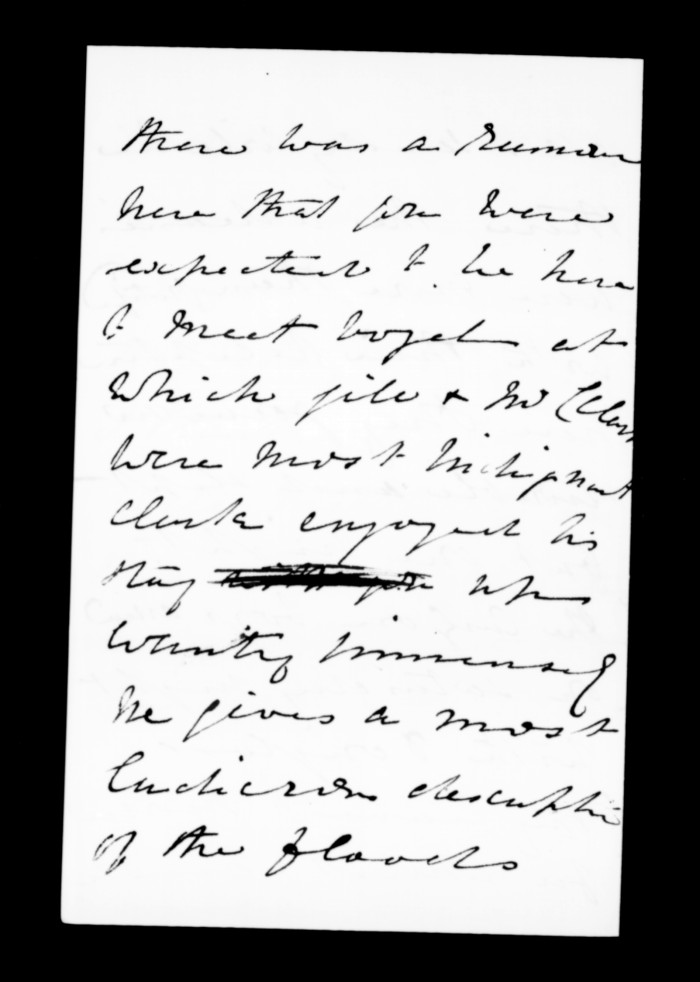 there was a rumour
here that you were
expected to be here
to meet Vogel at
which &
were most indignant
Clark enjoyed his
stay up
country immensely
he gives a most
ludicrous descriptio
of the floods